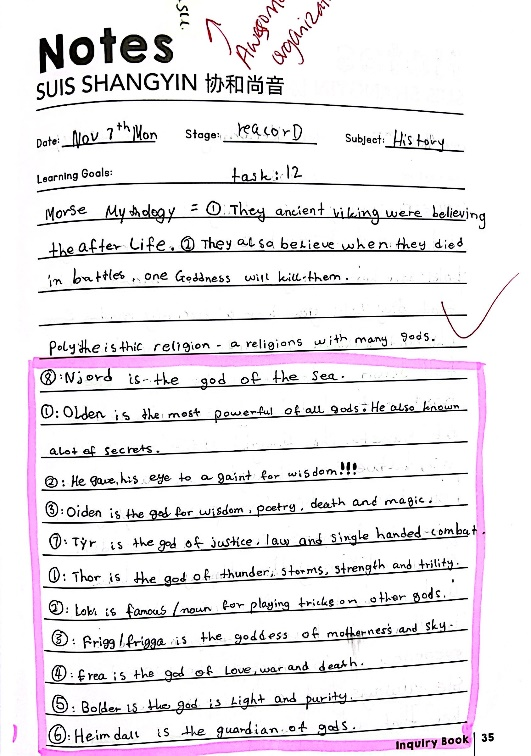 see.
Awesome
organiza
Notes
SUIS SHANGYIN 协和尚音
Date: Nov 7th Mon Stage: reacorD Subject: History
Learning Goals: task: 12
Morse Mythology = ① They ancient viking were believing
the after Life. ② They also believe when they died
in battles, one Goddness will kill them.
Polytheisthic religion - a religions with many gods.
⑧: Njord is the god of the sea.
①: Olden is the most powerful of all gods. He also known
alot of secrets.
②: He gave his eye to a gaint for wisdom!!!
③: Oiden is the god for wisdom, poetry, death and magic.
⑦: Týr is the god of justice, law and single handed-combat.
①: Thor is the god of thunder, storms, strength and trility.
②: Loki is famous /noun for playing tricks on other gods.
③: Frigg/frigga is the goddess of motherness and sky.
④: frea is the god of Love, war and death.
⑤: Bolder is the god is Light and purity.
⑥: Heimdall is the guardian of gods.
Inquiry Book 35